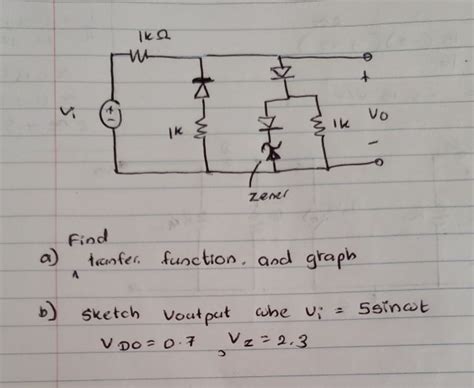 1kΩ
+
Vi
+
-
1k
1k
Vo
-
Zener
Find
a) tranfer. function. and graph
^
b) Sketch Voutput whe Vi = 5sinωt
VDO = 0.7 , VZ = 2.3